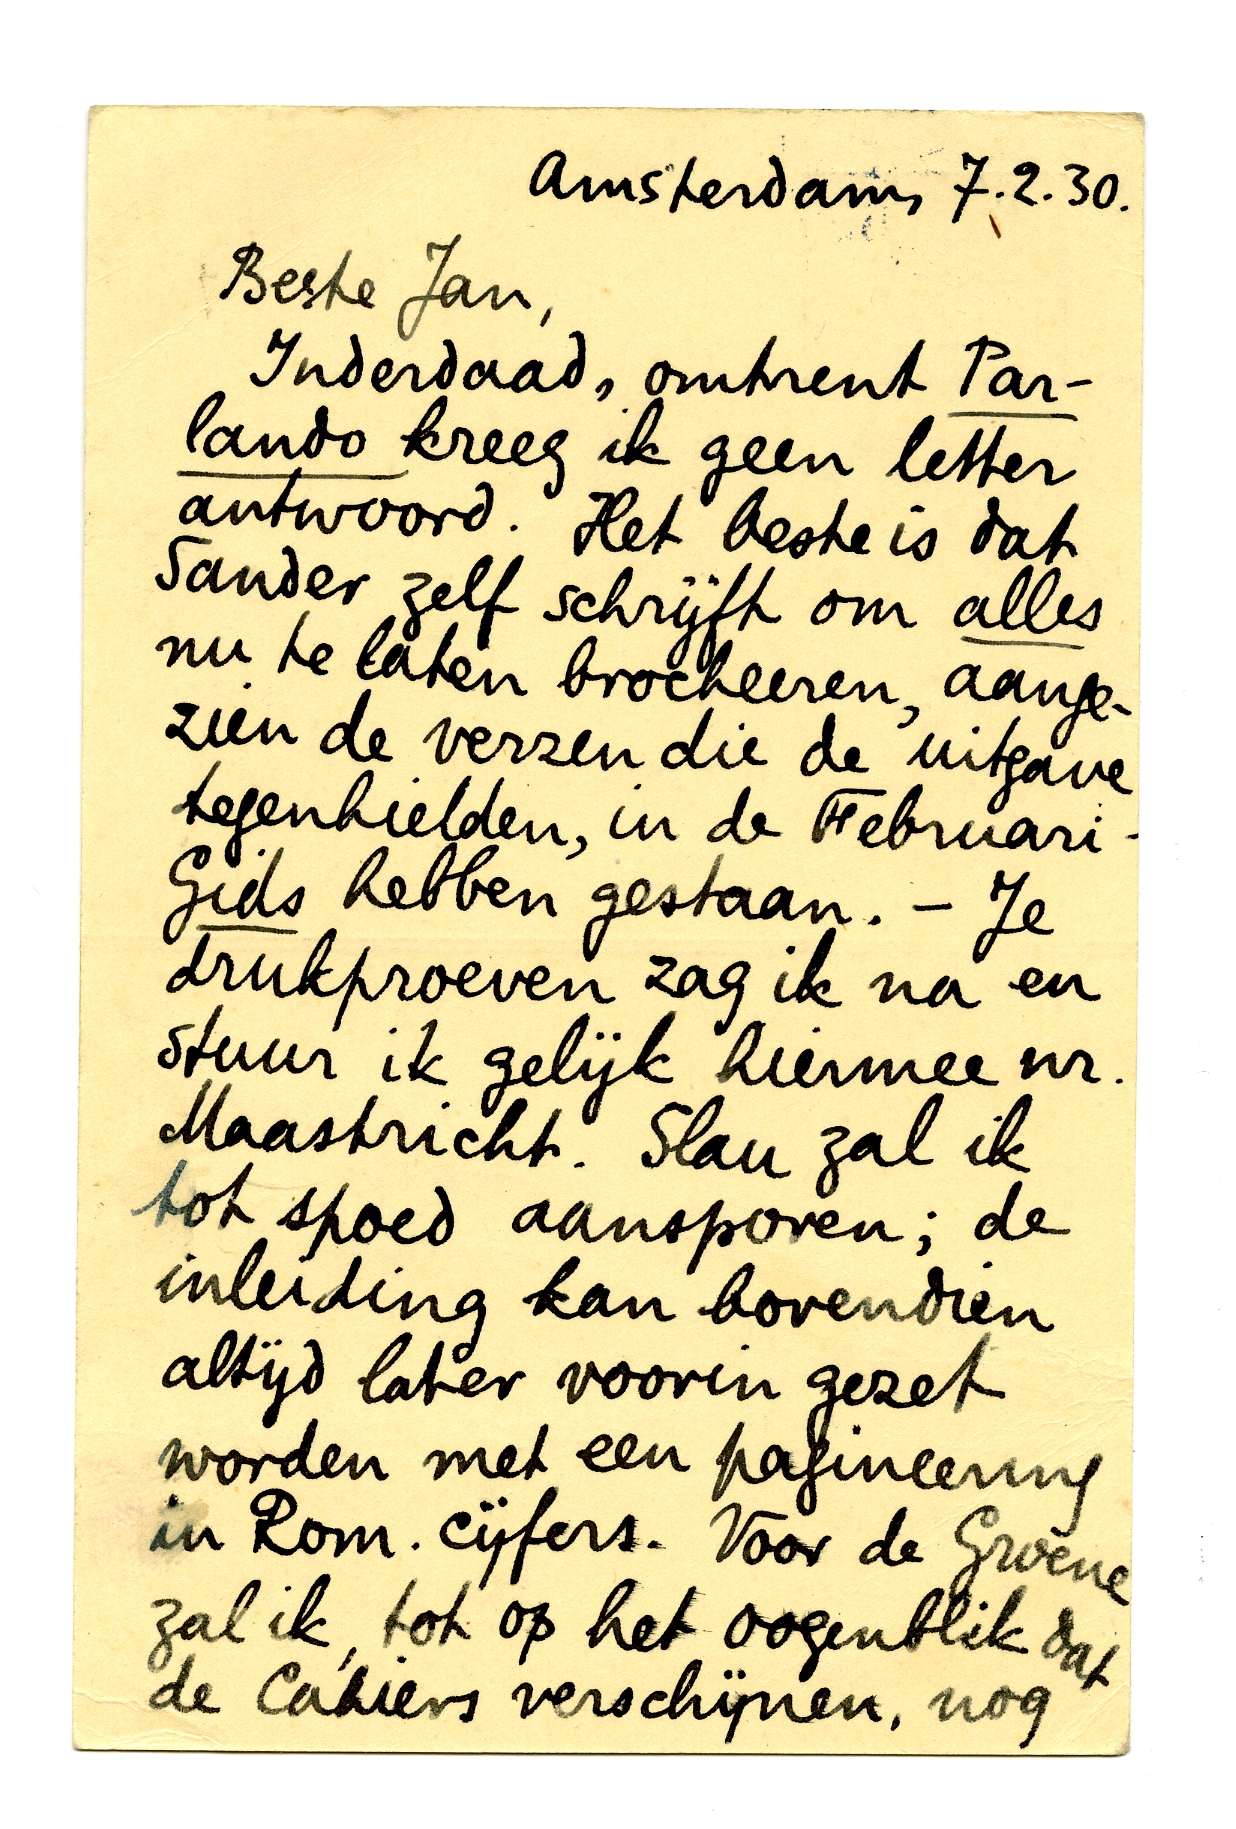 Amsterdam, 7.2.30.
Beste Jan,
Inderdaad, omtrent Par-
lando kreeg ik geen letter
antwoord. Het beste is dat
Sander zelf schrijft om alles
nu te laten brocheeren, aange-
zien de verzen die de uitgave
tegenhielden, in de Februari-
Gids hebben gestaan. – Je
drukproeven zag ik na en
stuur ik gelijk hiermee nr.
Maastricht. Slau zal ik
tot spoed aansporen; de
inleiding kan bovendien
altijd later voorin gezet
worden met een pagineering
in Rom. cijfers. Voor de Groene
zal ik, tot op het oogenblik dat
de Cahiers verschijnen, nog